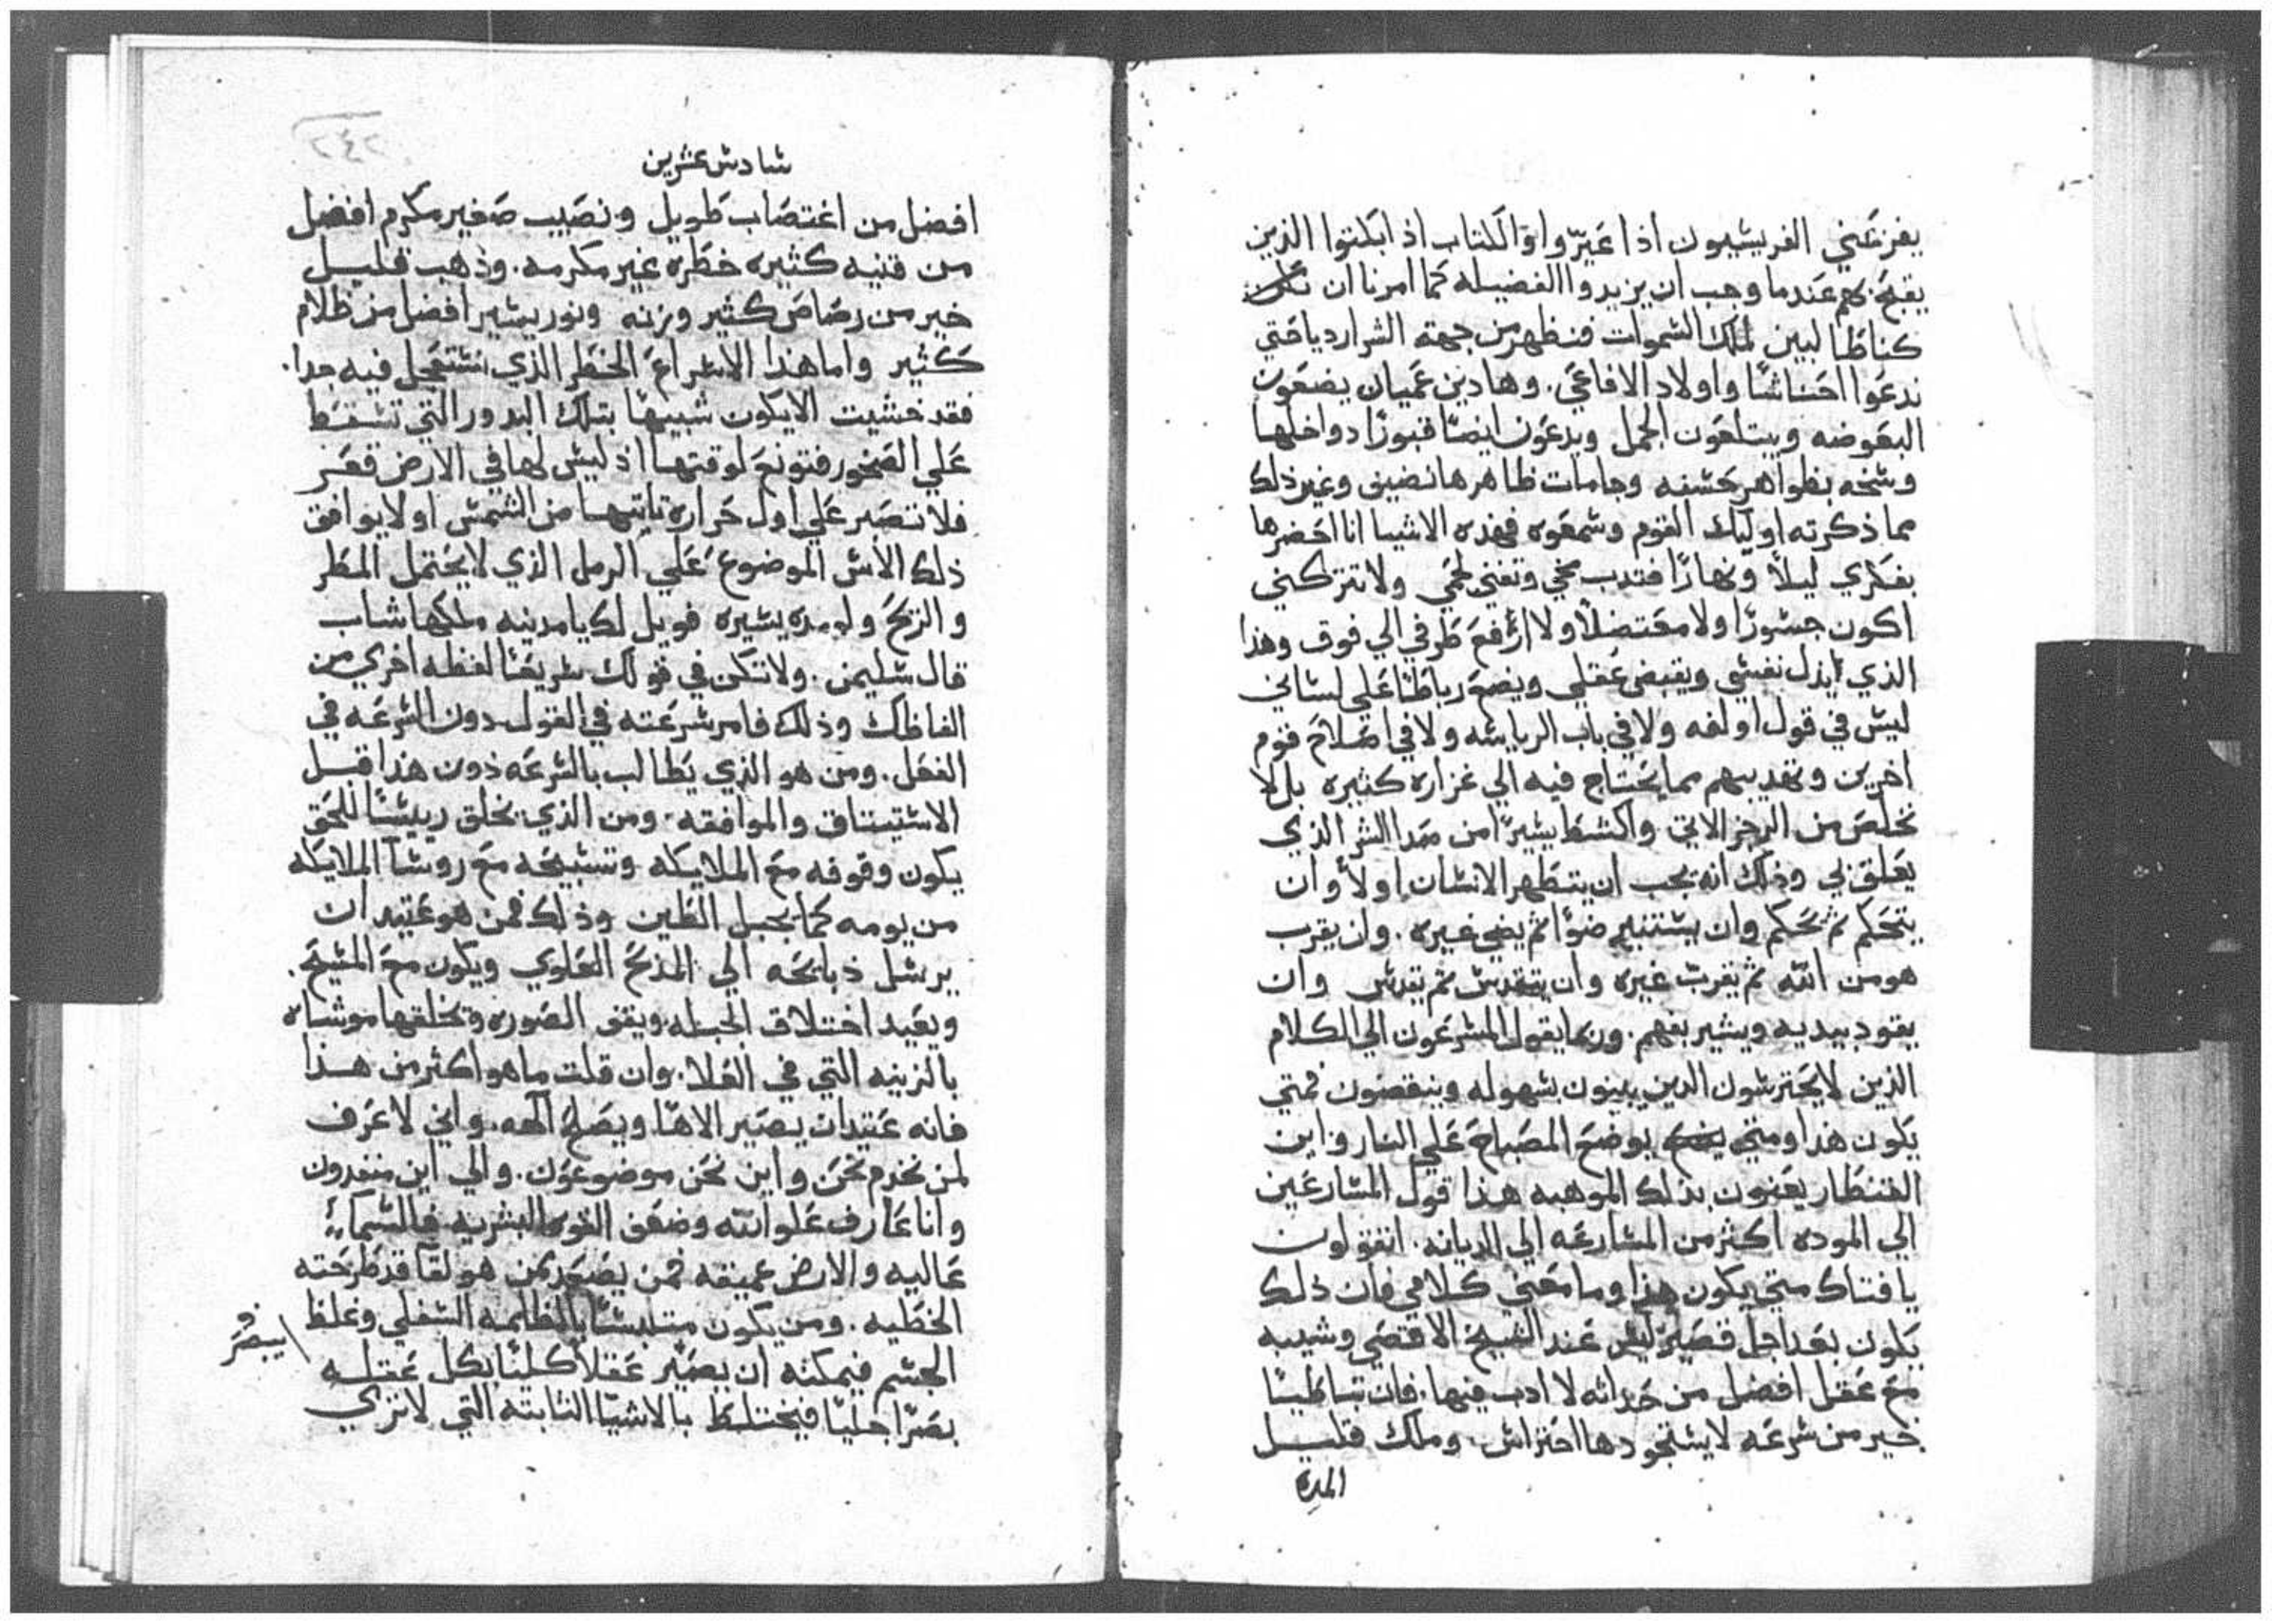 يفزعني الفريسيون اذا عَيّروا والكتاب اذ ابكتوا الذين
يقبح بهم عندما وجب ان يزيدوا الفضيله كما امرنا ان نكون
كناظالبين لملك السموات فنظهر من جهة الشر ارديا حتي
ندعوا احناشا واولاد الافاعي. وهادين عميان يصفون
البعوضه ويبتلعون الجمل ويدعون ايضا قبورا دواخلها
وسخه بظواهر حسنه وجامات ظاهرها نضيف وغير ذلك
مما ذكرته اوليك القوم وسمعوه فهذه الاشيا انا احضرها
بفكري ليلاً ونهارًا فتدب مخي وتفني لحمي ولا تتركني
اكون جسورًا ولا معتضلاً ولا ارفع طرفي الي فوق وهذا
الذي يذل نفسي ويقبض عقلي ويضع رباطا علي لساني
ليس في قول اولفه ولا في باب الرياسه ولا في اصلاح قوم
اخرين وتهديبهم مما يحتاج فيه الي غزاره كثيره بل لا
نخلص من الرجز الاتي واكشط يسيرًا من صدا الشر الذي
يعلق بي وذلك انه يجب ان يتطهر الانسان اولاً وان
يتحكم ثم يحكم وان يستنير ضوًا ثم يضي غيره. وان يقرب
هو من الله ثم يقرب غيره وان يتقدس ثم يقدس وان
يقود بيديه ويشير بفهم. وربما يقول المسرعون الي الكلام
الذين لا يحترسون الدين يبنون بسهوله وينقضون فمتي
يكون هذا ومتي يوضع المصباح علي المنار واين
القنطار يعنون بذلك الموهبه هذا قول المسارعين
الي الموده اكثر من المسارعه الي الديانه. اتقولون
يا فتاك متي يكون هذا وما معني كلامي فان ذلك
يكون بعد اجل قصير ليس عند الشيخ الاقصي وشيبه
مع عقل افضل من حداثه لا ادب فيها. فان تباطيا
خير من سرعه لا يستجودها احتراس. وملك قليل
المده
سادس عشرين
افضل من اغتصاب طويل ونصيب صغير مكرم افضل
من قنيه كثيره خطره غير مكرمه. وذهب قليل
خير من رصاص كثير وزنه ونور يسير افضل من ظلام
كثير واما هذا الاسراع الخطر الذي نستعجل فيه جدا.
فقد خشيت الا يكون شبيها بتلك البدور التي تسقط
علي الصخور فتونع لوقتها اذ ليس لها في الارض قعر
فلا تصبر علي اول حراره تاتيها من الشمس او لا يوافق
ذلك الاس الموضوع علي الرمل الذي لا يحتمل المطر
والريح ولو مده يسيره فويل لك يا مدينه ملكها شاب
قال سليمن. ولا تكن في قولك سريعا لفظه اخري من
الفاظك وذلك فامر سرعته في القول دون السرعه في
الفعل. ومن هو الذي يطالب بالسرعه دون هذا قبل
الاستيتاق والموافقه. ومن الذي يخلق ريسا للحق
يكون وقوفه مع الملايكه وتسبيحه مع روسا الملايكه
من يومه كما يجبل الطين وذلك فمن هو عتيد ان
يرسل ذبايحه الي المذبح العلوي ويكون مع المسيح.
ويعيد اختلاف الجبله ويقف الصوره وتخلقها موشاه
بالزينه التي في العلا. وان قلت ما هو اكثر من هذا
فانه عتيد ان يصير الاها ويصلح الهه. واني لا عرف
لمن نخدم نحن واين نحن موضوعون. والي اين منفدون
وانا عارف علو الله وضعف القوه البشريه فالسماء
عاليه والارض عميقه فمن يصعد ممن هو لقا قد طرحته
الخطيه. ومن يكون متلبسا بالظلمه السفلي وغلظ
الجسم فيمكنه ان يصير عقلاً كليًا بكل عقله
يبصر
بصرًا جليًا فيختلط بالاشيا الثابته التي لا تري